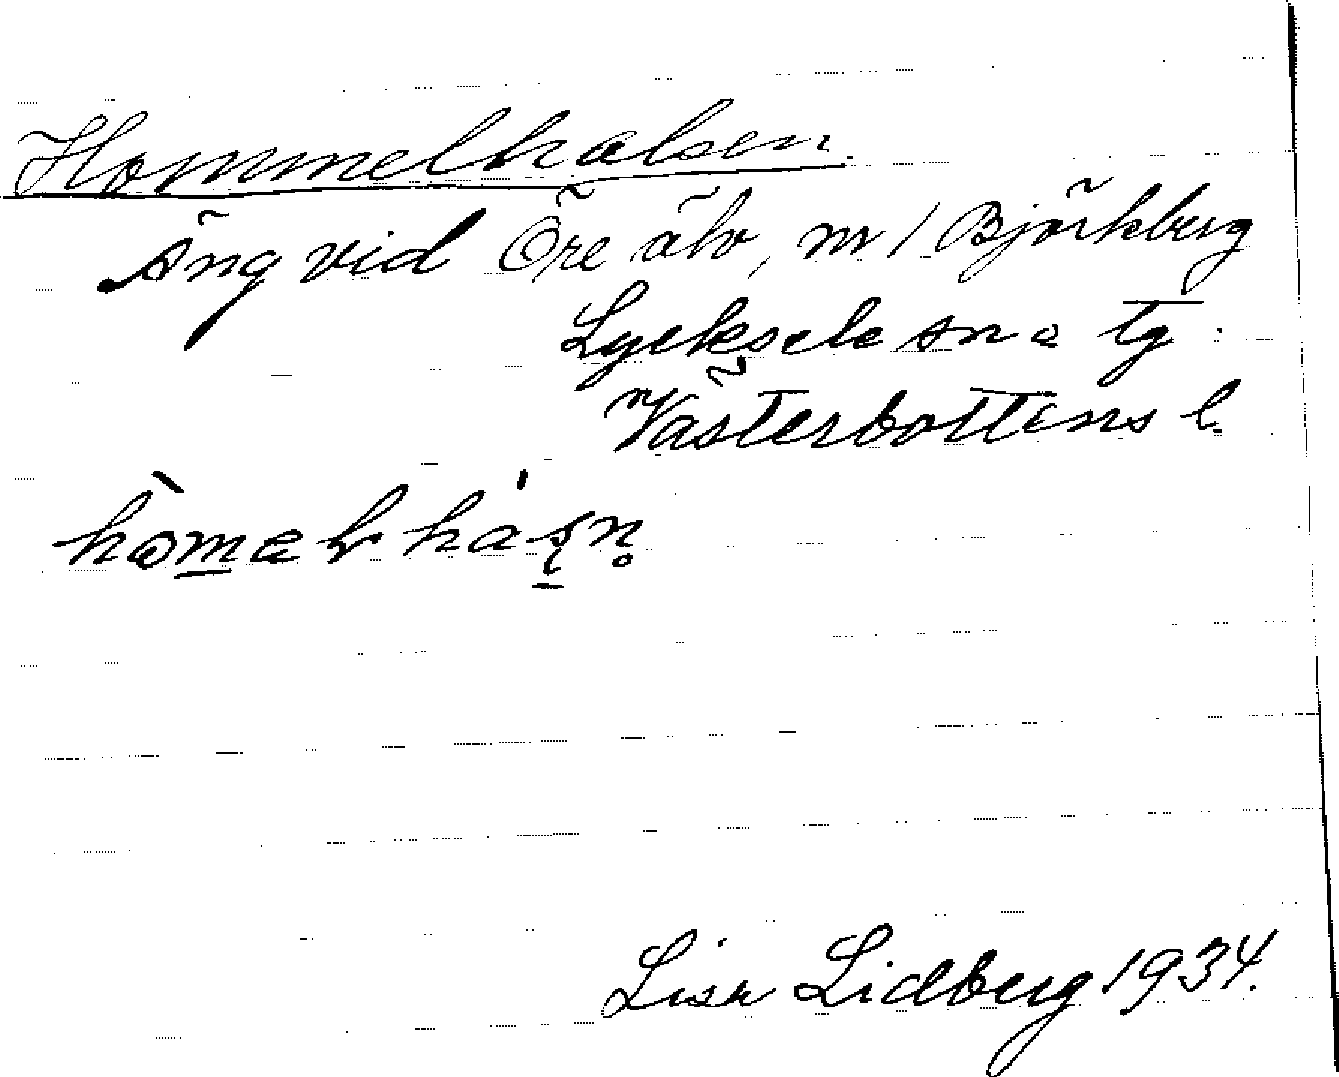 Hommelhalsen.
Äng vid Öre älv, nr 1 Björkberg
Lycksele sn o tg.
Västerbottens l.
Lisa Lidberg 1934.